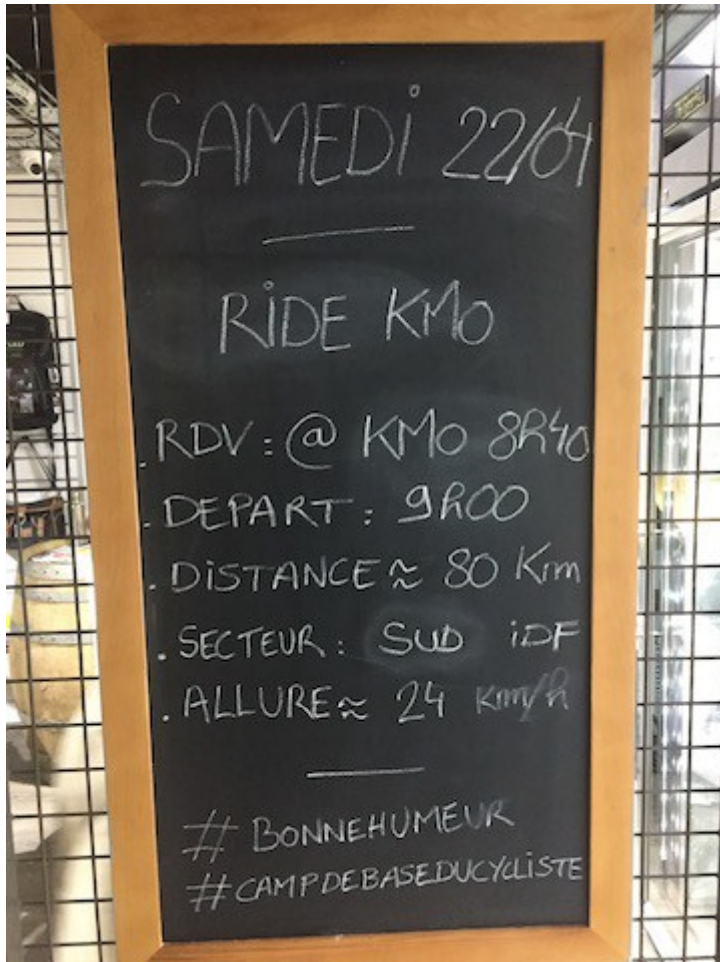 SAMEDi 22/04
RiDE KM0
. RDV : @ KM0 8h40
. DEPART : 9h00
. DiSTANCE ≈ 80 Km
. SECTEUR : SUD iDF
. ALLURE ≈ 24 Km/h
# BONNEHUMEUR
# CAMPDEBASEDUCYCLiSTE